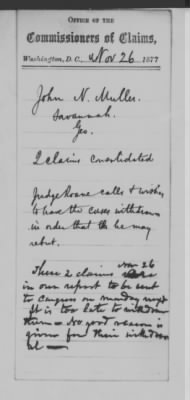 OFFICE OF THE
Commissioners of Claims,
Washington, D. C., Nov 26 1877
John N. Muller.
Savannah.
Geo.
2 claims consolidated
Judge Roane calls & wishes
to have the cases withdrawn
in order that he may
rebut.
Nov 26
These 2 claims were
in our report to be sent
to Congress on Monday next
It is too late to withdraw
them – No good reason is
given for their withdrawal